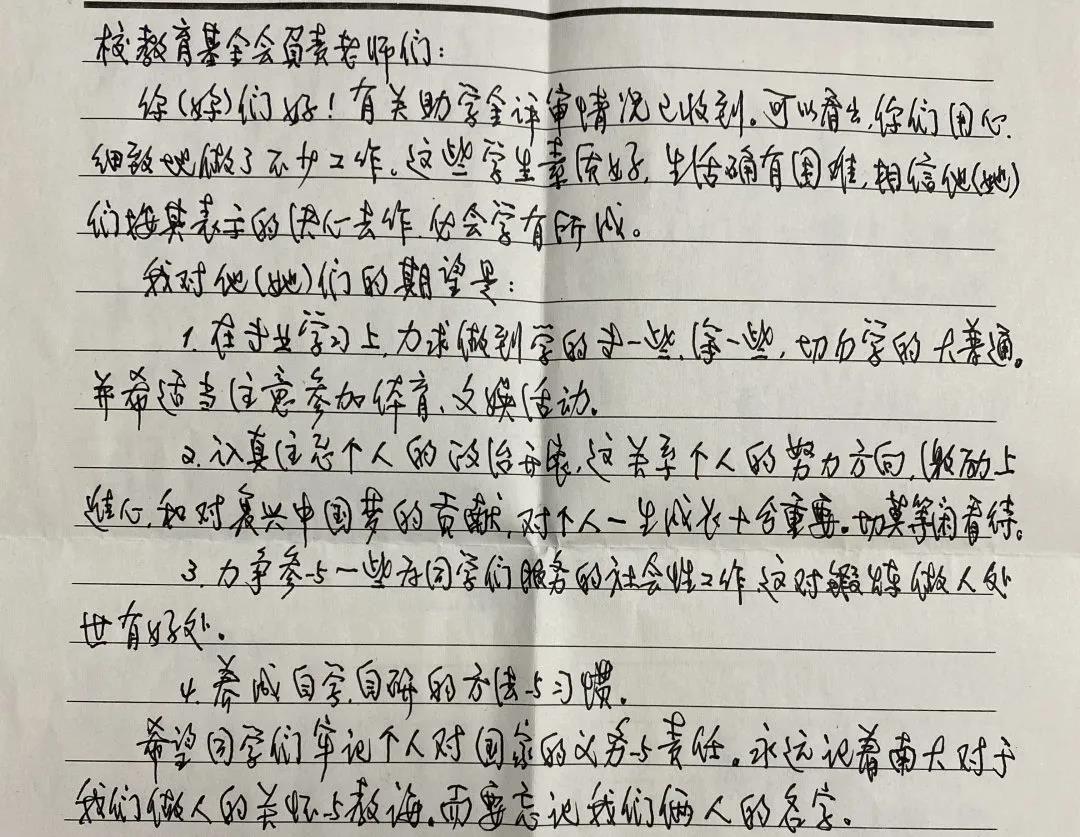 校教育基金会负责老师们:
你(妳)们好!有关助学金评审情况已收到。可以看出,你们用心、
细致地做了不少工作。这些学生素质好,生活确有困难,相信他(她)
们按其表示的决心去作,必会学有所成。
我对他(她)们的期望是:
1. 在专业学习上,力求做到学的专一些、深一些,切勿学的大普通。
并希适当注意参加体育、文娱活动。
2. 认真注意个人的政治开展,这关系个人的努力方向,激励上
进心,和对复兴中国梦的贡献,对个人一生成长十分重要。切莫等闲看待。
3. 力争参与一些为同学们服务的社会性工作,这对锻炼做人处
世有好处。
4. 养成自学、自研的方法与习惯。
希望同学们牢记个人对国家的义务与责任。永远记着南大对于
我们做人的关怀与教诲。而要忘记我们俩人的名字。